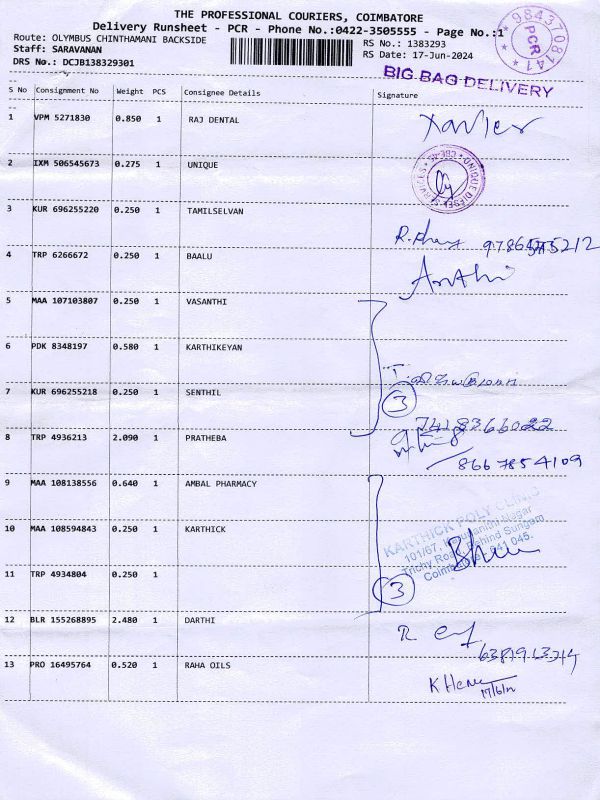 THE PROFESSIONAL COURIERS, COIMBATORE
Delivery Runsheet - PCR - Phone No.:0422-3505555 - Page No.:1
Route: OLYMBUS CHINTHAMANI BACKSIDE
RS No.: 1383293
Staff: SARAVANAN
RS Date: 17-Jun-2024
DRS No.: DCJB138329301
984370814
PCR
BIG BAG DELIVERY
S No Consignment No Weight PCS Consignee Details Signature
1 VPM 5271830 0.850 1 RAJ DENTAL Xavier
2 IXM 506545673 0.275 1 UNIQUE
UNIQUE DIESEL SERVICES
3 KUR 696255220 0.250 1 TAMILSELVAN
4 TRP 6266672 0.250 1 BAALU
5 MAA 107103807 0.250 1 VASANTHI
6 PDK 8348197 0.580 1 KARTHIKEYAN
7 KUR 696255218 0.250 1 SENTHIL 3
8 TRP 4936213 2.090 1 PRATHEBA
8667854109
9 MAA 108138556 0.640 1 AMBAL PHARMACY
KARTHICK POLY CLINIC
101/67, Karunanithi Nagar
Trichy Road, Behind Sungam
Coimbatore - 641 045.
10 MAA 108594843 0.250 1 KARTHICK
11 TRP 4934804 0.250 1 3
12 BLR 155268895 2.480 1 DARTHI
13 PRO 16495764 0.520 1 RAHA OILS